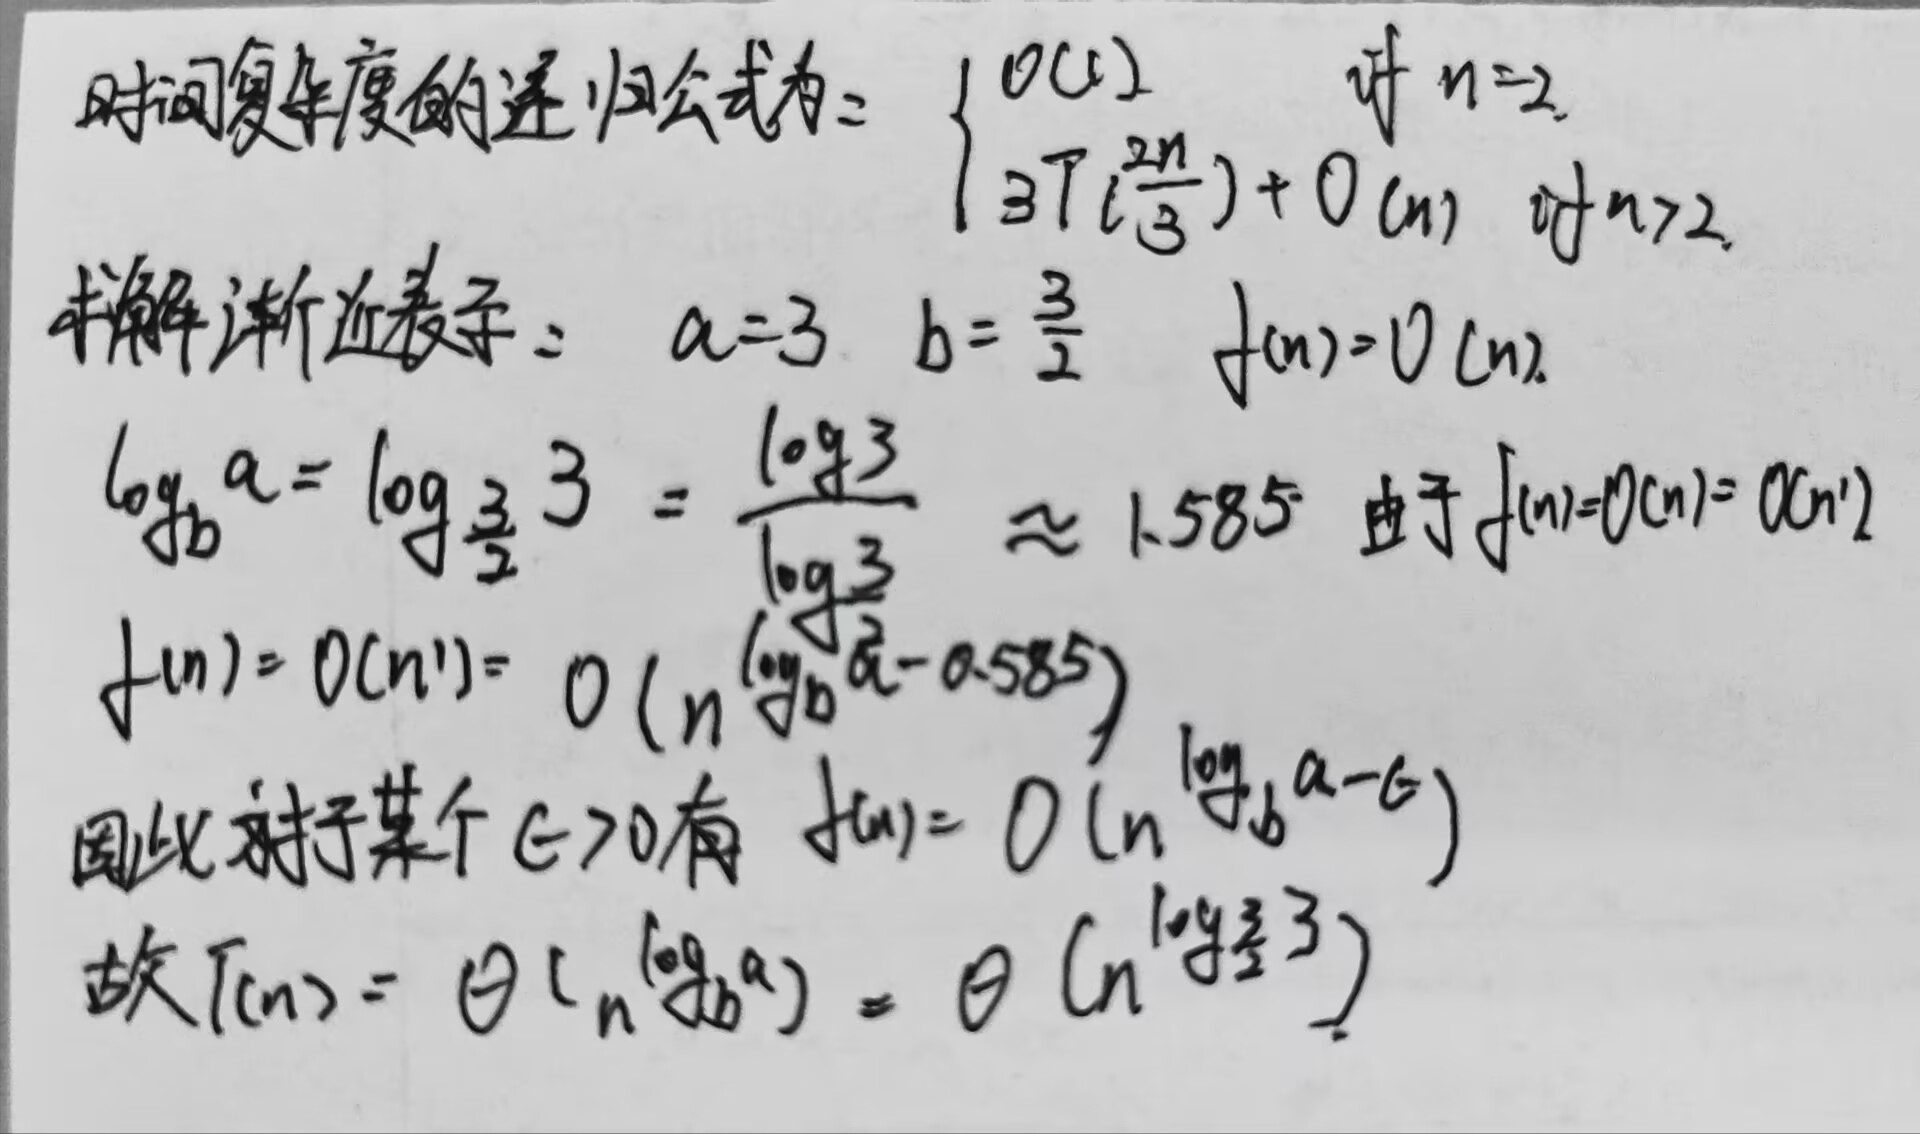 时间复杂度的递归公式为: { O(1) 时 n=2.
3T(2n/3) + O(n) 时 n>2.
求解渐近表示: a=3 b=3/2 f(n)=O(n).
log_b a = log_{3/2} 3 = log3 / log 3/2 ≈ 1.585 由于 f(n)=O(n)=O(n¹)
f(n)=O(n¹)= O(n^{log_b a-0.585})
因此对于某个 ε>0有 f(n)= O(n^{log_b a-ε})
故T(n)= θ(n^{log_b a}) = θ(n^{log_{3/2} 3}).